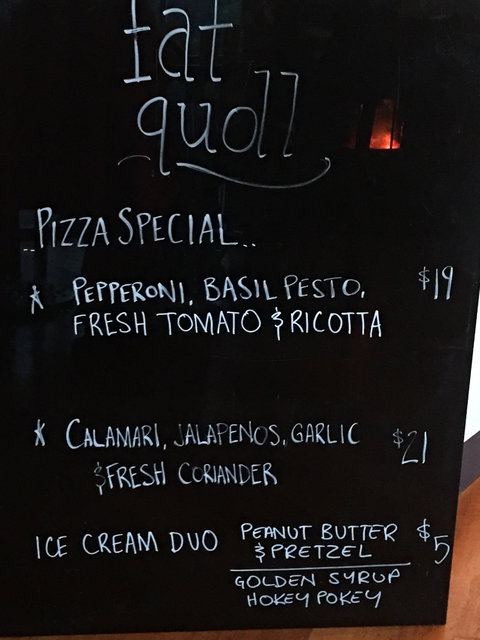 fat
quoll
..PIZZA SPECIAL..
* PEPPERONI, BASIL PESTO, $19
FRESH TOMATO & RICOTTA
* CALAMARI, JALAPENOS, GARLIC $21
& FRESH CORIANDER
ICE CREAM DUO PEANUT BUTTER $5
& PRETZEL
GOLDEN SYRUP
HOKEY POKEY